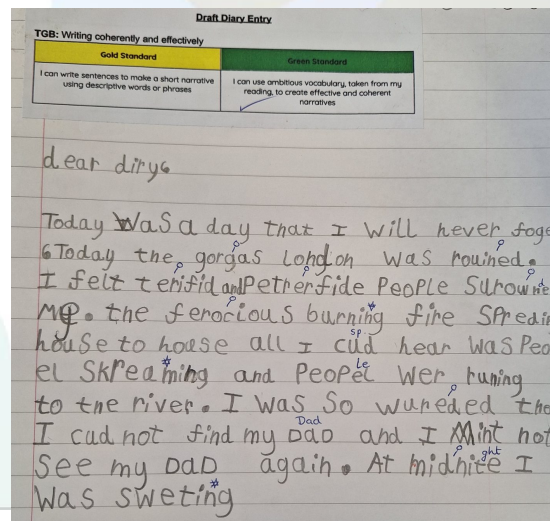 Draft Diary Entry
TGB: Writing coherently and effectively
Gold Standard
Green Standard
I can write sentences to make a short narrative
using descriptive words or phrases
I can use ambitious vocabulary, taken from my
reading, to create effective and coherent
narratives
dear dirys
Today was a day that I will never foge
Today the gorgas London was rouined.
I felt terifid and Petrerfide People Surowne
me. the ferocious burning fire SPredin
sp.
house to house all I cud hear was Peo
le
el Skreaming and PeoPel wer runing
to the river. I was so wureded the
Dad
I cud not find my DaD and I Mint not
ght
See my DaD again. At midnite I
was sweting